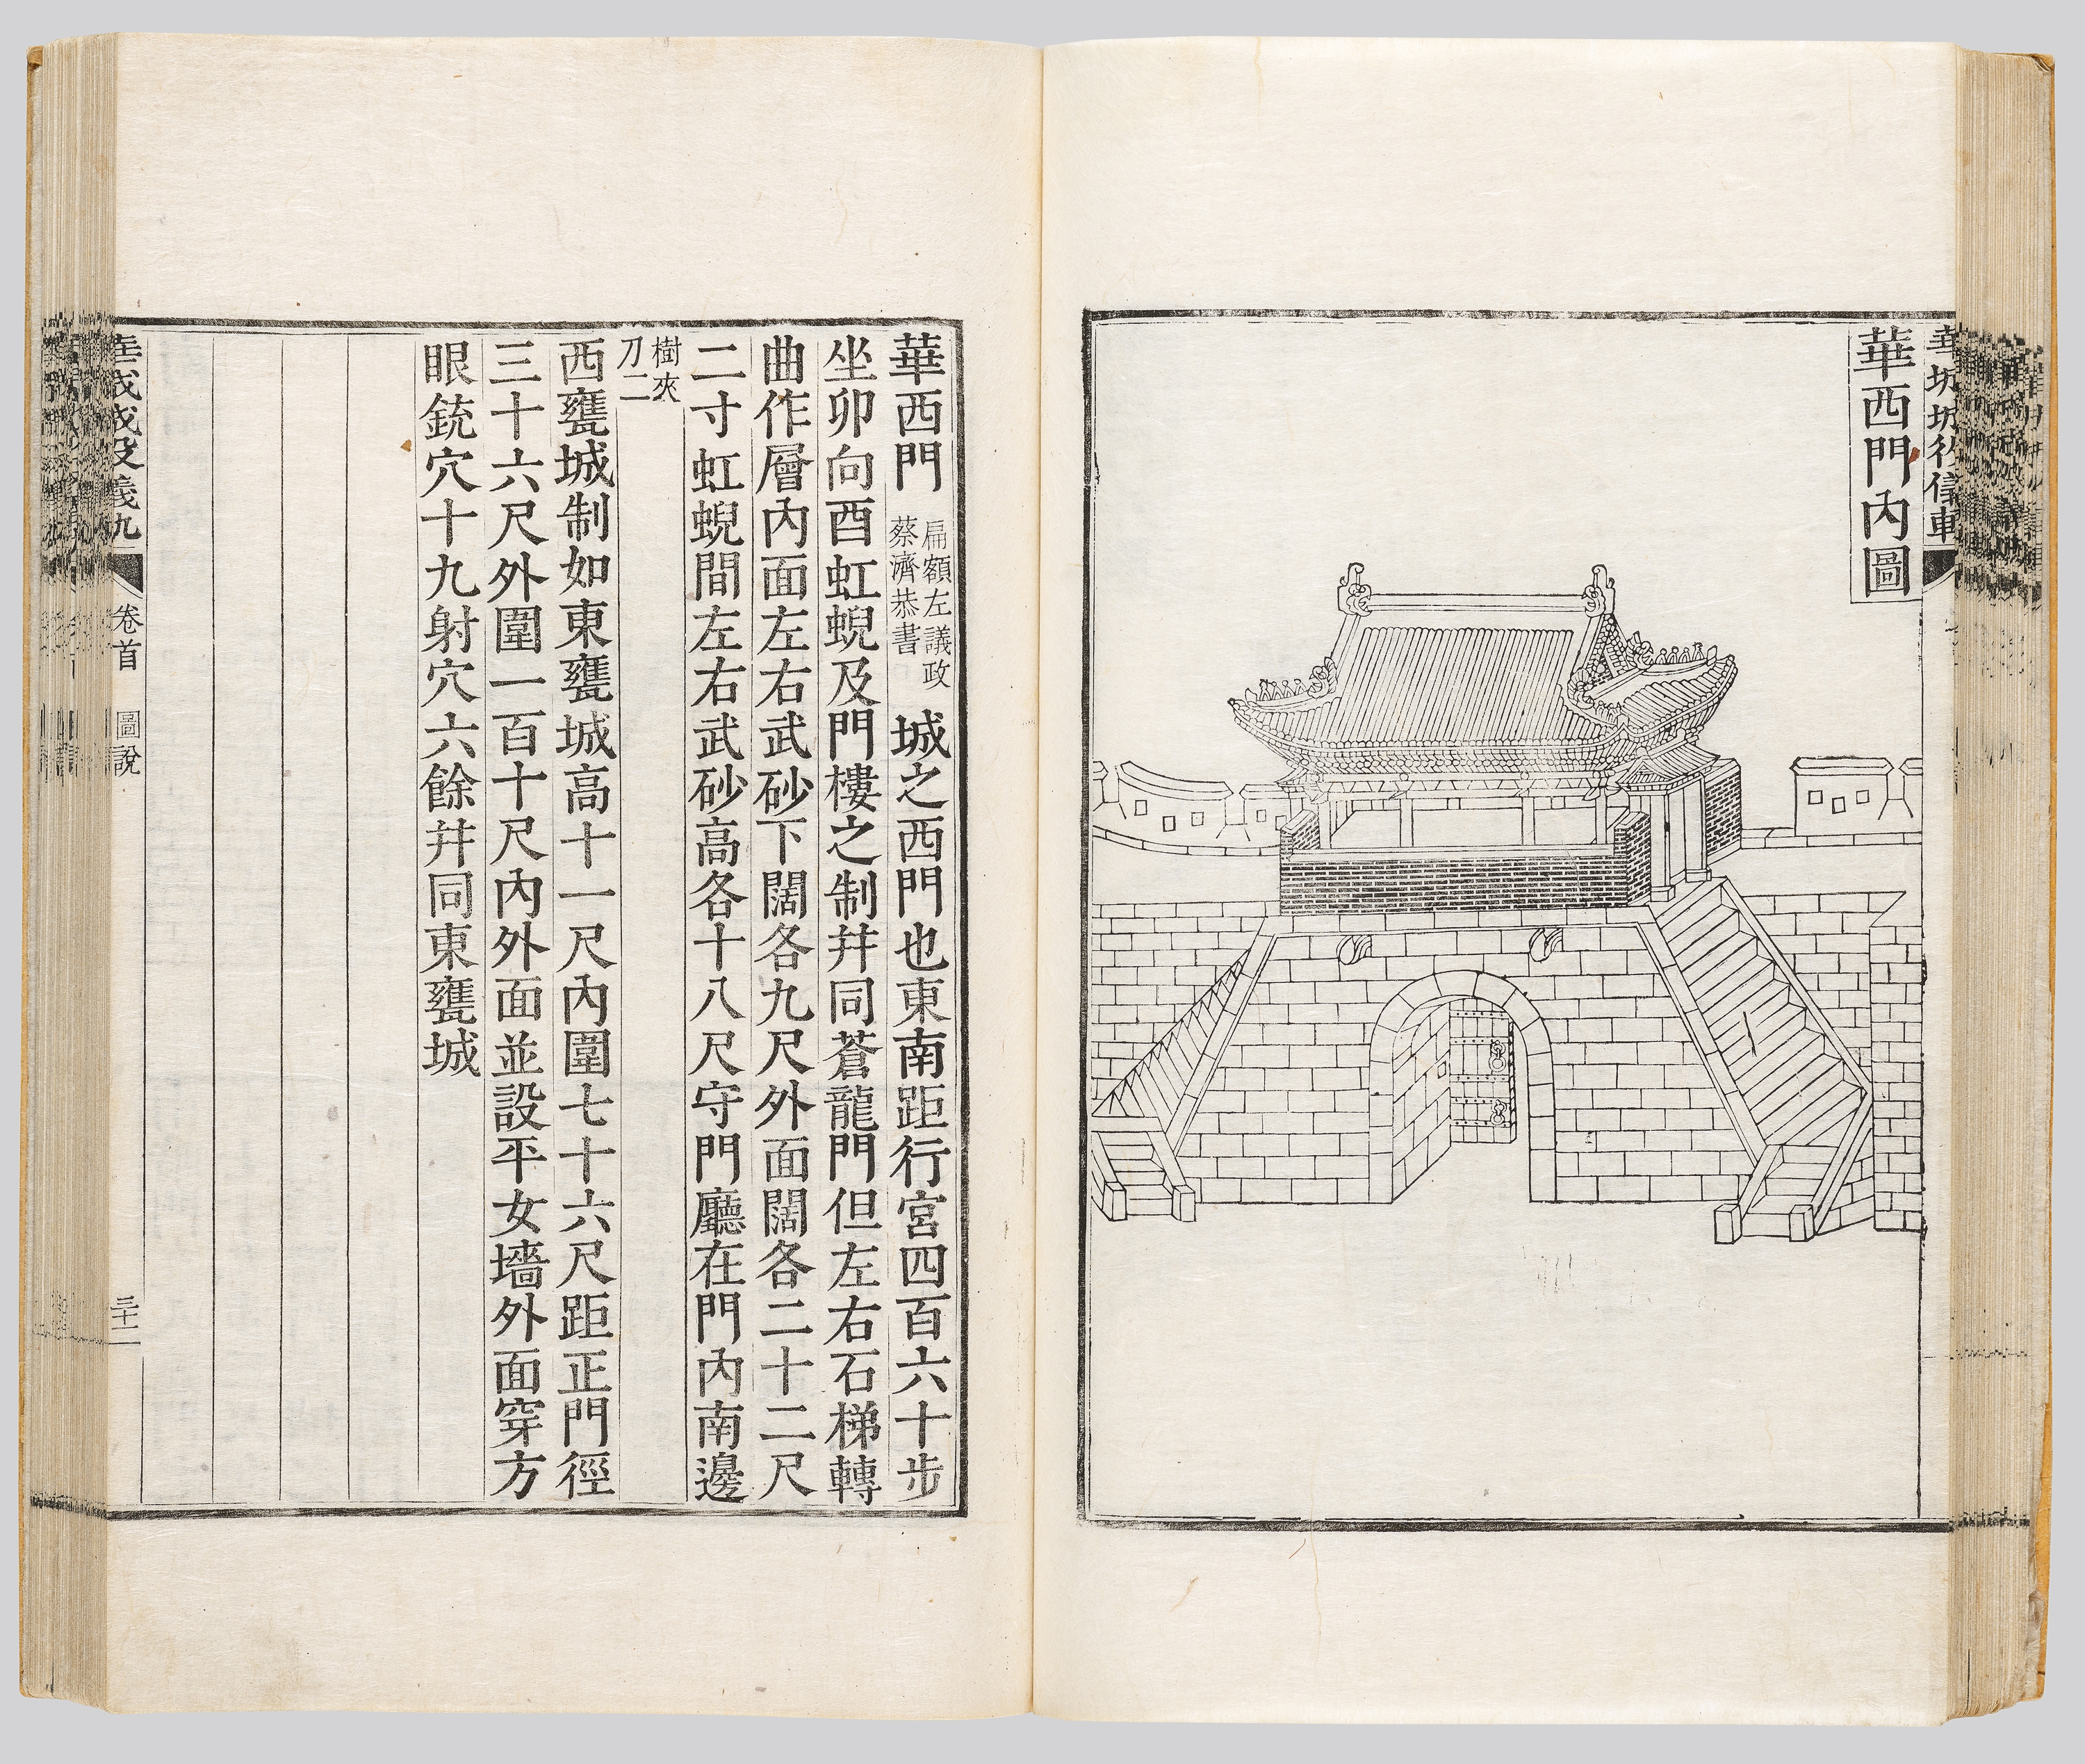 華西門內圖
華西門 扁額左議政蔡濟恭書 城之西門也東南距行宮四百六十步
坐卯向酉虹蜺及門樓之制幷同蒼龍門但左右石梯轉
曲作層內面左右武砂下闊各九尺外面闊各二十二尺
二寸虹蜺間左右武砂高各十八尺守門廳在門內南邊
樹夾刀二
西甕城制如東甕城高十一尺內圍七十六尺距正門徑
三十六尺外圍一百十尺內外面並設平女墻外面穿方
眼銃穴十九射穴六餘幷同東甕城
卷首 圖說